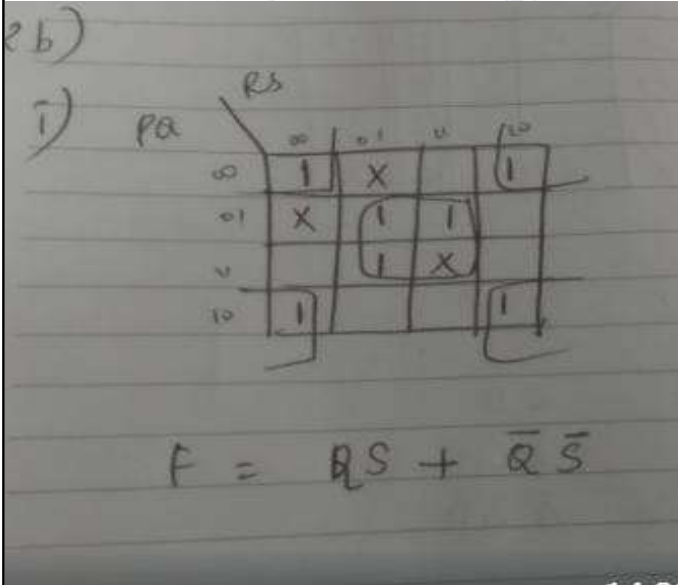 2b)
i)
RS
PQ
00 01 11 10
00 1 X 1
01 X 1 1
11 1 X
10 1 1
F = QS + Q̅ S̅